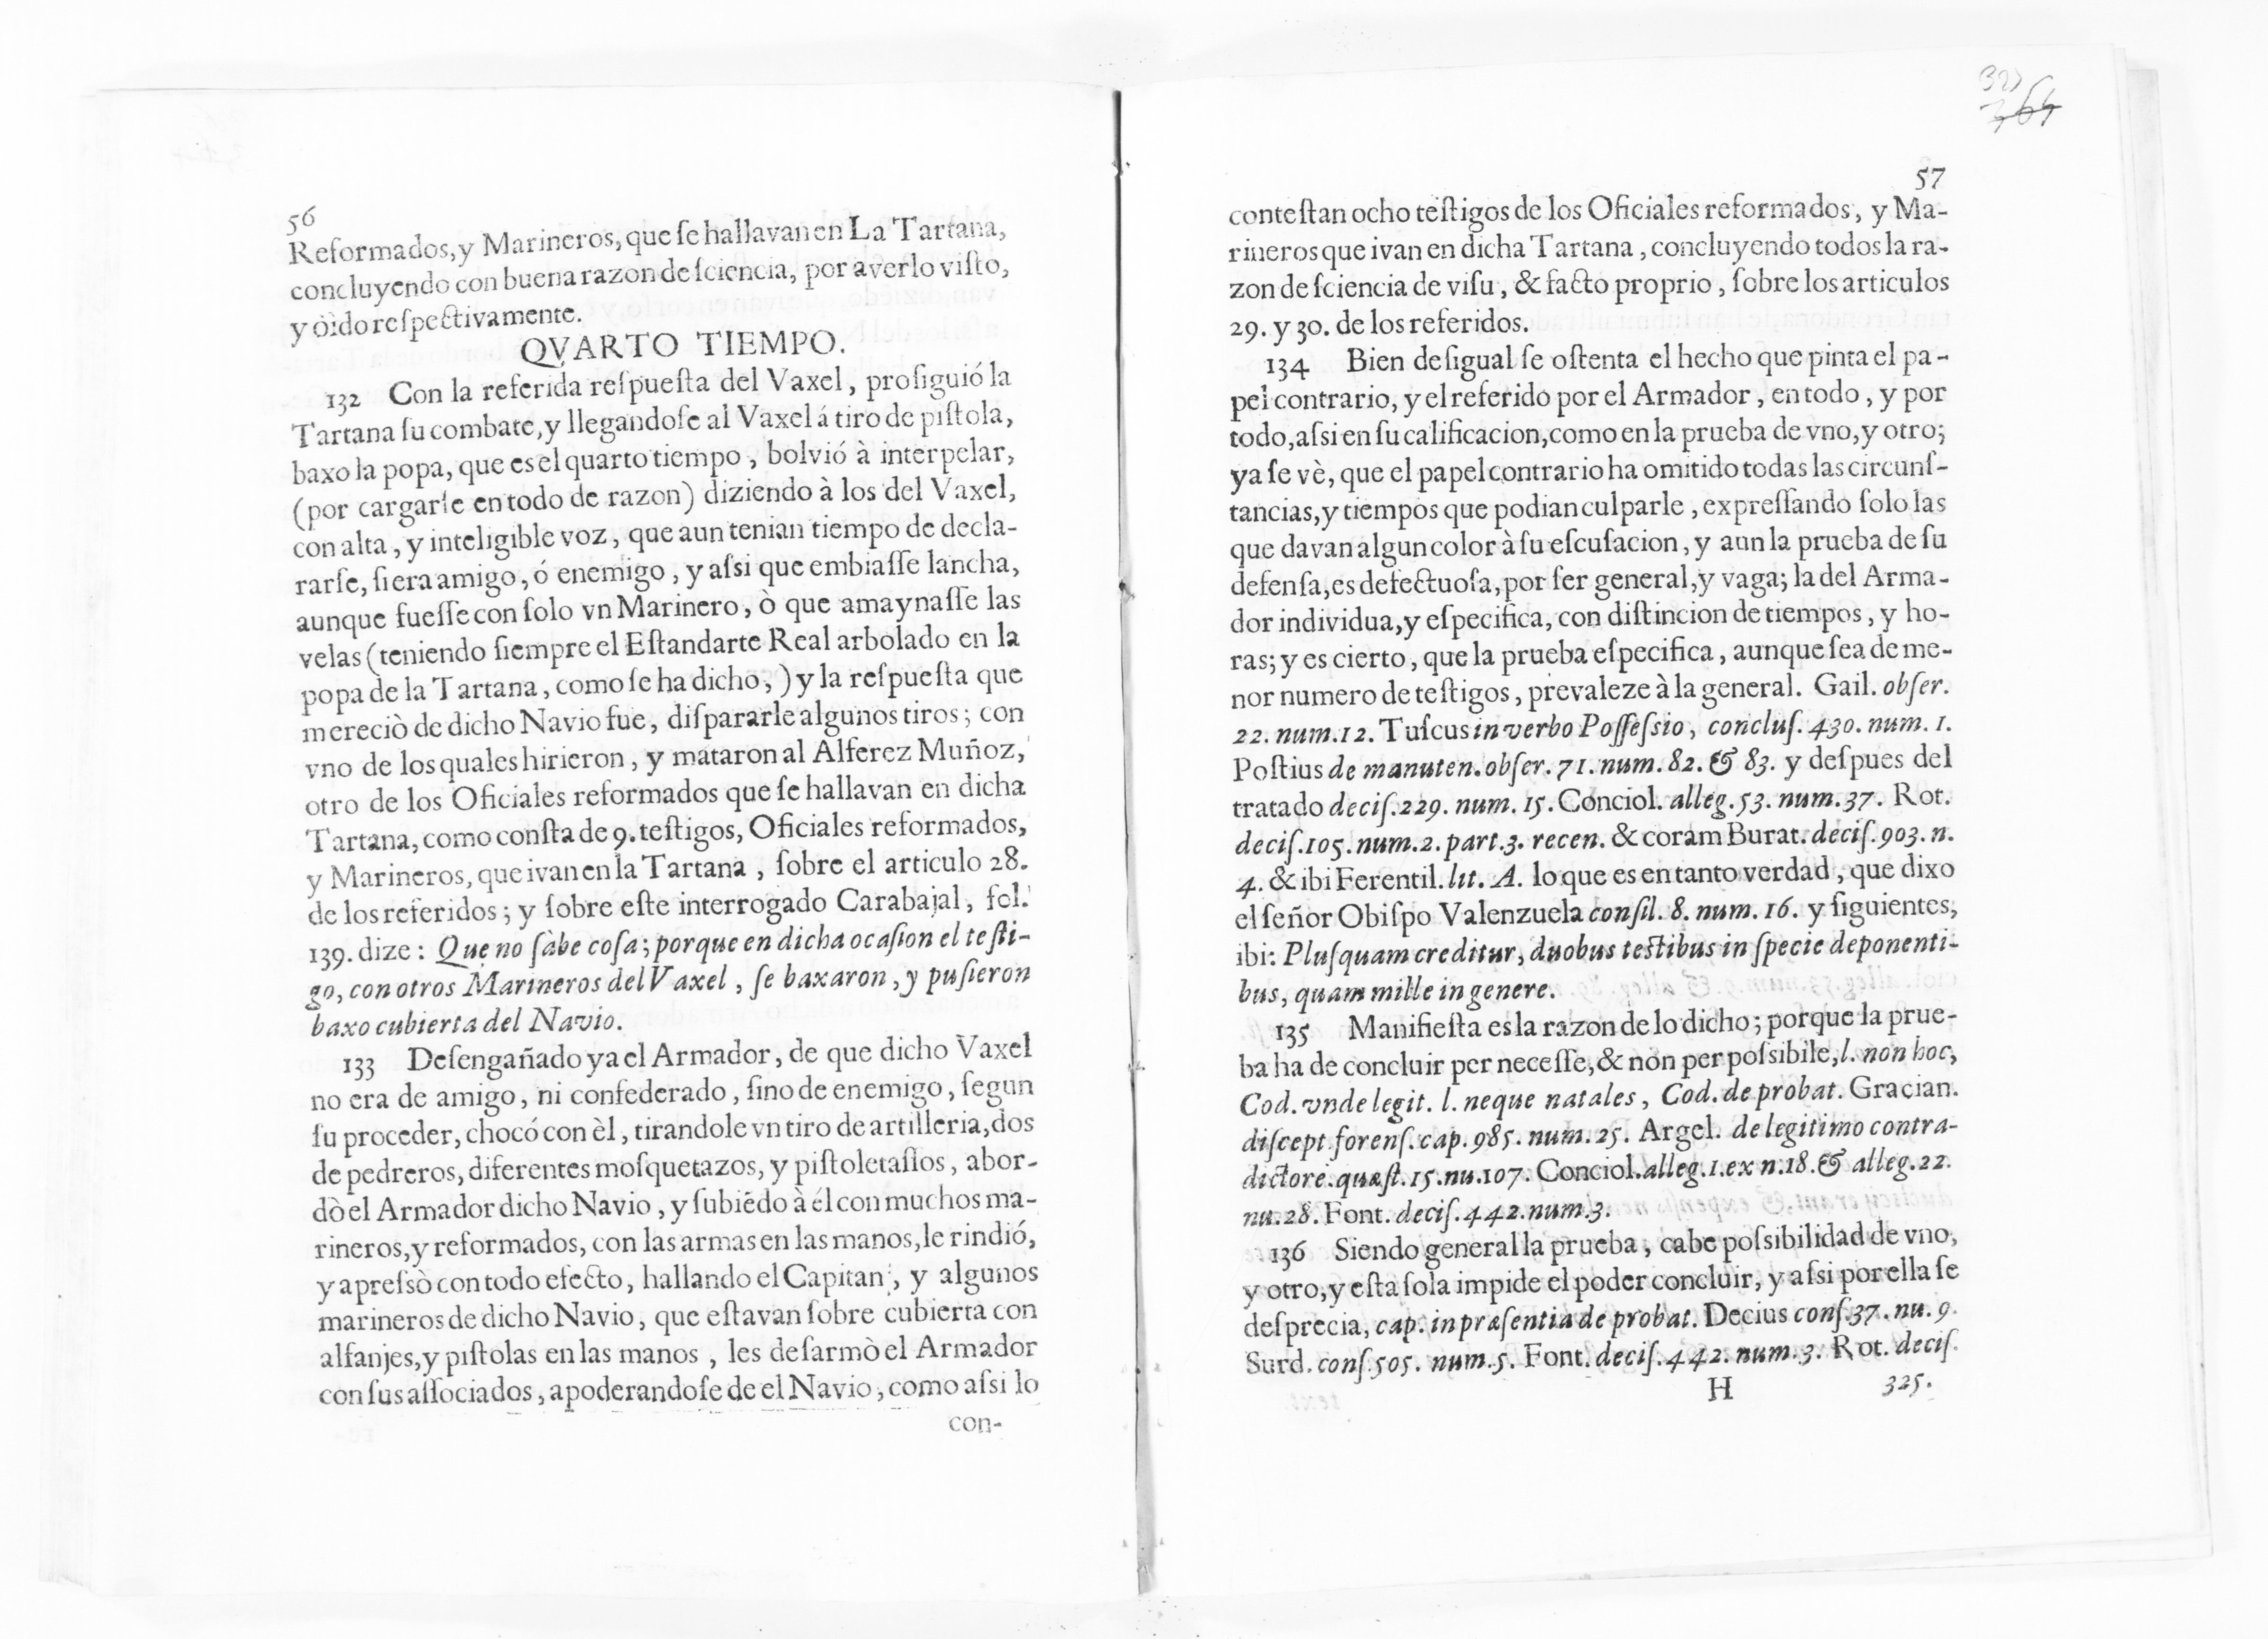 56
Reformados, y Marineros, que ſe hallavan en La Tartana,
concluyendo con buena razon de ſciencia, por averlo viſto,
y òìdo reſpectivamente.
QVARTO TIEMPO.
132 Con la referida reſpueſta del Vaxel, proſiguió la
Tartana ſu combate, y llegandoſe al Vaxel á tiro de piſtola,
baxo la popa, que es el quarto tiempo, bolvió à interpelar,
(por cargarſe en todo de razon) diziendo à los del Vaxel,
con alta, y inteligible voz, que aun tenian tiempo de decla-
rarſe, ſi era amigo, ó enemigo, y aſsi que embiaſſe lancha,
aunque fueſſe con ſolo vn Marinero, ò que amaynaſſe las
velas (teniendo ſiempre el Eſtandarte Real arbolado en la
popa de la Tartana, como ſe ha dicho,) y la reſpueſta que
mereciò de dicho Navio fue, diſpararle algunos tiros; con
vno de los quales hirieron, y mataron al Alferez Muñoz,
otro de los Oficiales reformados que ſe hallavan en dicha
Tartana, como conſta de 9. teſtigos, Oficiales reformados,
y Marineros, que ivan en la Tartana, ſobre el articulo 28.
de los referidos; y ſobre eſte interrogado Carabajal, fol.
139. dize: Que no ſàbe coſa; porque en dicha ocaſion el teſti-
go, con otros Marineros del Vaxel, ſe baxaron, y puſieron
baxo cubierta del Navio.
133 Deſengañado ya el Armador, de que dicho Vaxel
no era de amigo, ni confederado, ſino de enemigo, ſegun
ſu proceder, chocó con èl, tirandole vn tiro de artilleria, dos
de pedreros, diferentes moſquetazos, y piſtoletaſſos, abor-
dò el Armador dicho Navio, y ſubiẽdo à él con muchos ma-
rineros, y reformados, con las armas en las manos, le rindió,
y apreſsò con todo efecto, hallando el Capitan, y algunos
marineros de dicho Navio, que eſtavan ſobre cubierta con
alfanjes, y piſtolas en las manos, les deſarmò el Armador
con ſus aſſociados, apoderandoſe de el Navio, como aſsi lo
con-
57
conteſtan ocho teſtigos de los Oficiales reformados, y Ma-
rineros que ivan en dicha Tartana, concluyendo todos la ra-
zon de ſciencia de viſu, & facto proprio, ſobre los articulos
29. y 30. de los referidos.
134 Bien deſigual ſe oſtenta el hecho que pinta el pa-
pel contrario, y el referido por el Armador, en todo, y por
todo, aſsi en ſu calificacion, como en la prueba de vno, y otro;
ya ſe vè, que el papel contrario ha omitido todas las circunſ-
tancias, y tiempos que podian culparle, expreſſando ſolo las
que davan algun color à ſu eſcuſacion, y aun la prueba de ſu
defenſa, es defectuoſa, por ſer general, y vaga; la del Arma-
dor individua, y eſpecifica, con diſtincion de tiempos, y ho-
ras; y es cierto, que la prueba eſpecifica, aunque ſea de me-
nor numero de teſtigos, prevaleze à la general. Gail. obſer.
22. num. 12. Tuſcus in verbo Poſſeſsio, concluſ. 430. num. 1.
Poſtius de manuten. obſer. 71. num. 82. & 83. y deſpues del
tratado deciſ. 229. num. 15. Conciol. alleg. 53. num. 37. Rot.
deciſ. 105. num. 2. part. 3. recen. & coram Burat. deciſ. 903. n.
4. & ibi Ferentil. lit. A. lo que es en tanto verdad, que dixo
el ſeñor Obiſpo Valenzuela conſil. 8. num. 16. y ſiguientes,
ibi: Pluſquam creditur, duobus teſtibus in ſpecie deponenti-
bus, quam mille in genere.
135 Manifieſta es la razon de lo dicho; porque la prue-
ba ha de concluir per neceſſe, & non per poſsibile, l. non hoc,
Cod. vnde legit. l. neque natales, Cod. de probat. Gracian.
diſcept. forenſ. cap. 985. num. 25. Argel. de legitimo contra-
dictore. quæſt. 15. nu. 107. Conciol. alleg. 1. ex n. 18. & alleg. 22.
nu. 28. Font. deciſ. 442. num. 3.
136 Siendo general la prueba, cabe poſsibilidad de vno,
y otro, y eſta ſola impide el poder concluir, y aſsi por ella ſe
deſprecia, cap. in præſentia de probat. Decius conſ. 37. nu. 9.
Surd. conſ. 505. num. 5. Font. deciſ. 442. num. 3. Rot. deciſ.
H 325.